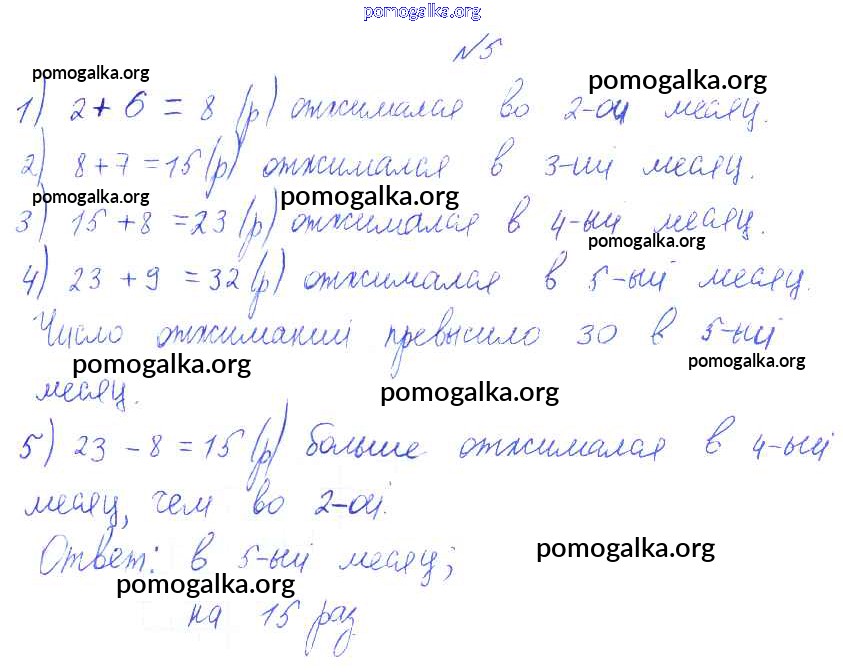 pomogalka.org
№5
pomogalka.org
pomogalka.org
1) 2 + 6 = 8 (р) отжимался во 2-ой месяц.
2) 8 + 7 = 15 (р) отжимался в 3-ий месяц.
pomogalka.org
pomogalka.org
3) 15 + 8 = 23 (р) отжимался в 4-ый месяц.
pomogalka.org
4) 23 + 9 = 32 (р) отжимался в 5-ый месяц.
Число отжиманий превысило 30 в 5-ый
pomogalka.org
pomogalka.org
месяц.
pomogalka.org
5) 23 - 8 = 15 (р) больше отжимался в 4-ый
месяц, чем во 2-ой.
Ответ: в 5-ый месяц;
pomogalka.org
pomogalka.org
на 15 раз